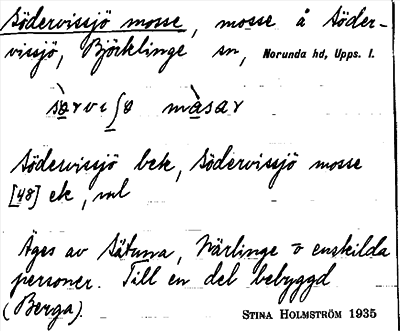 Södervissjö mosse, mosse å Söder-
vissjö, Björklinge sn, Norunda hd, Upps. l.
sə̀rvɩʃə màsar
Södervissjö bek, Södervissjö mosse
[48] ek, val
Äges av Sätuna, Närlinge o enskilda
personer. Till en del bebyggd
(Berga). STINA HOLMSTRÖM 1935